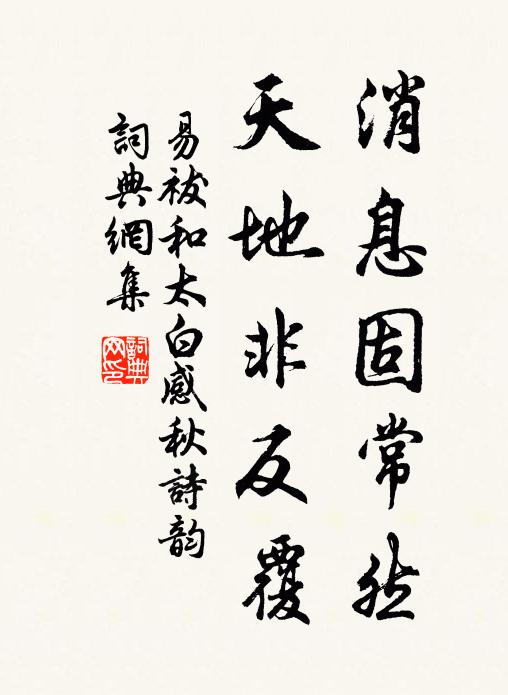 消息固常然
天地非反覆
易祓和太白感秋詩韵
詞典網集
詞典網印